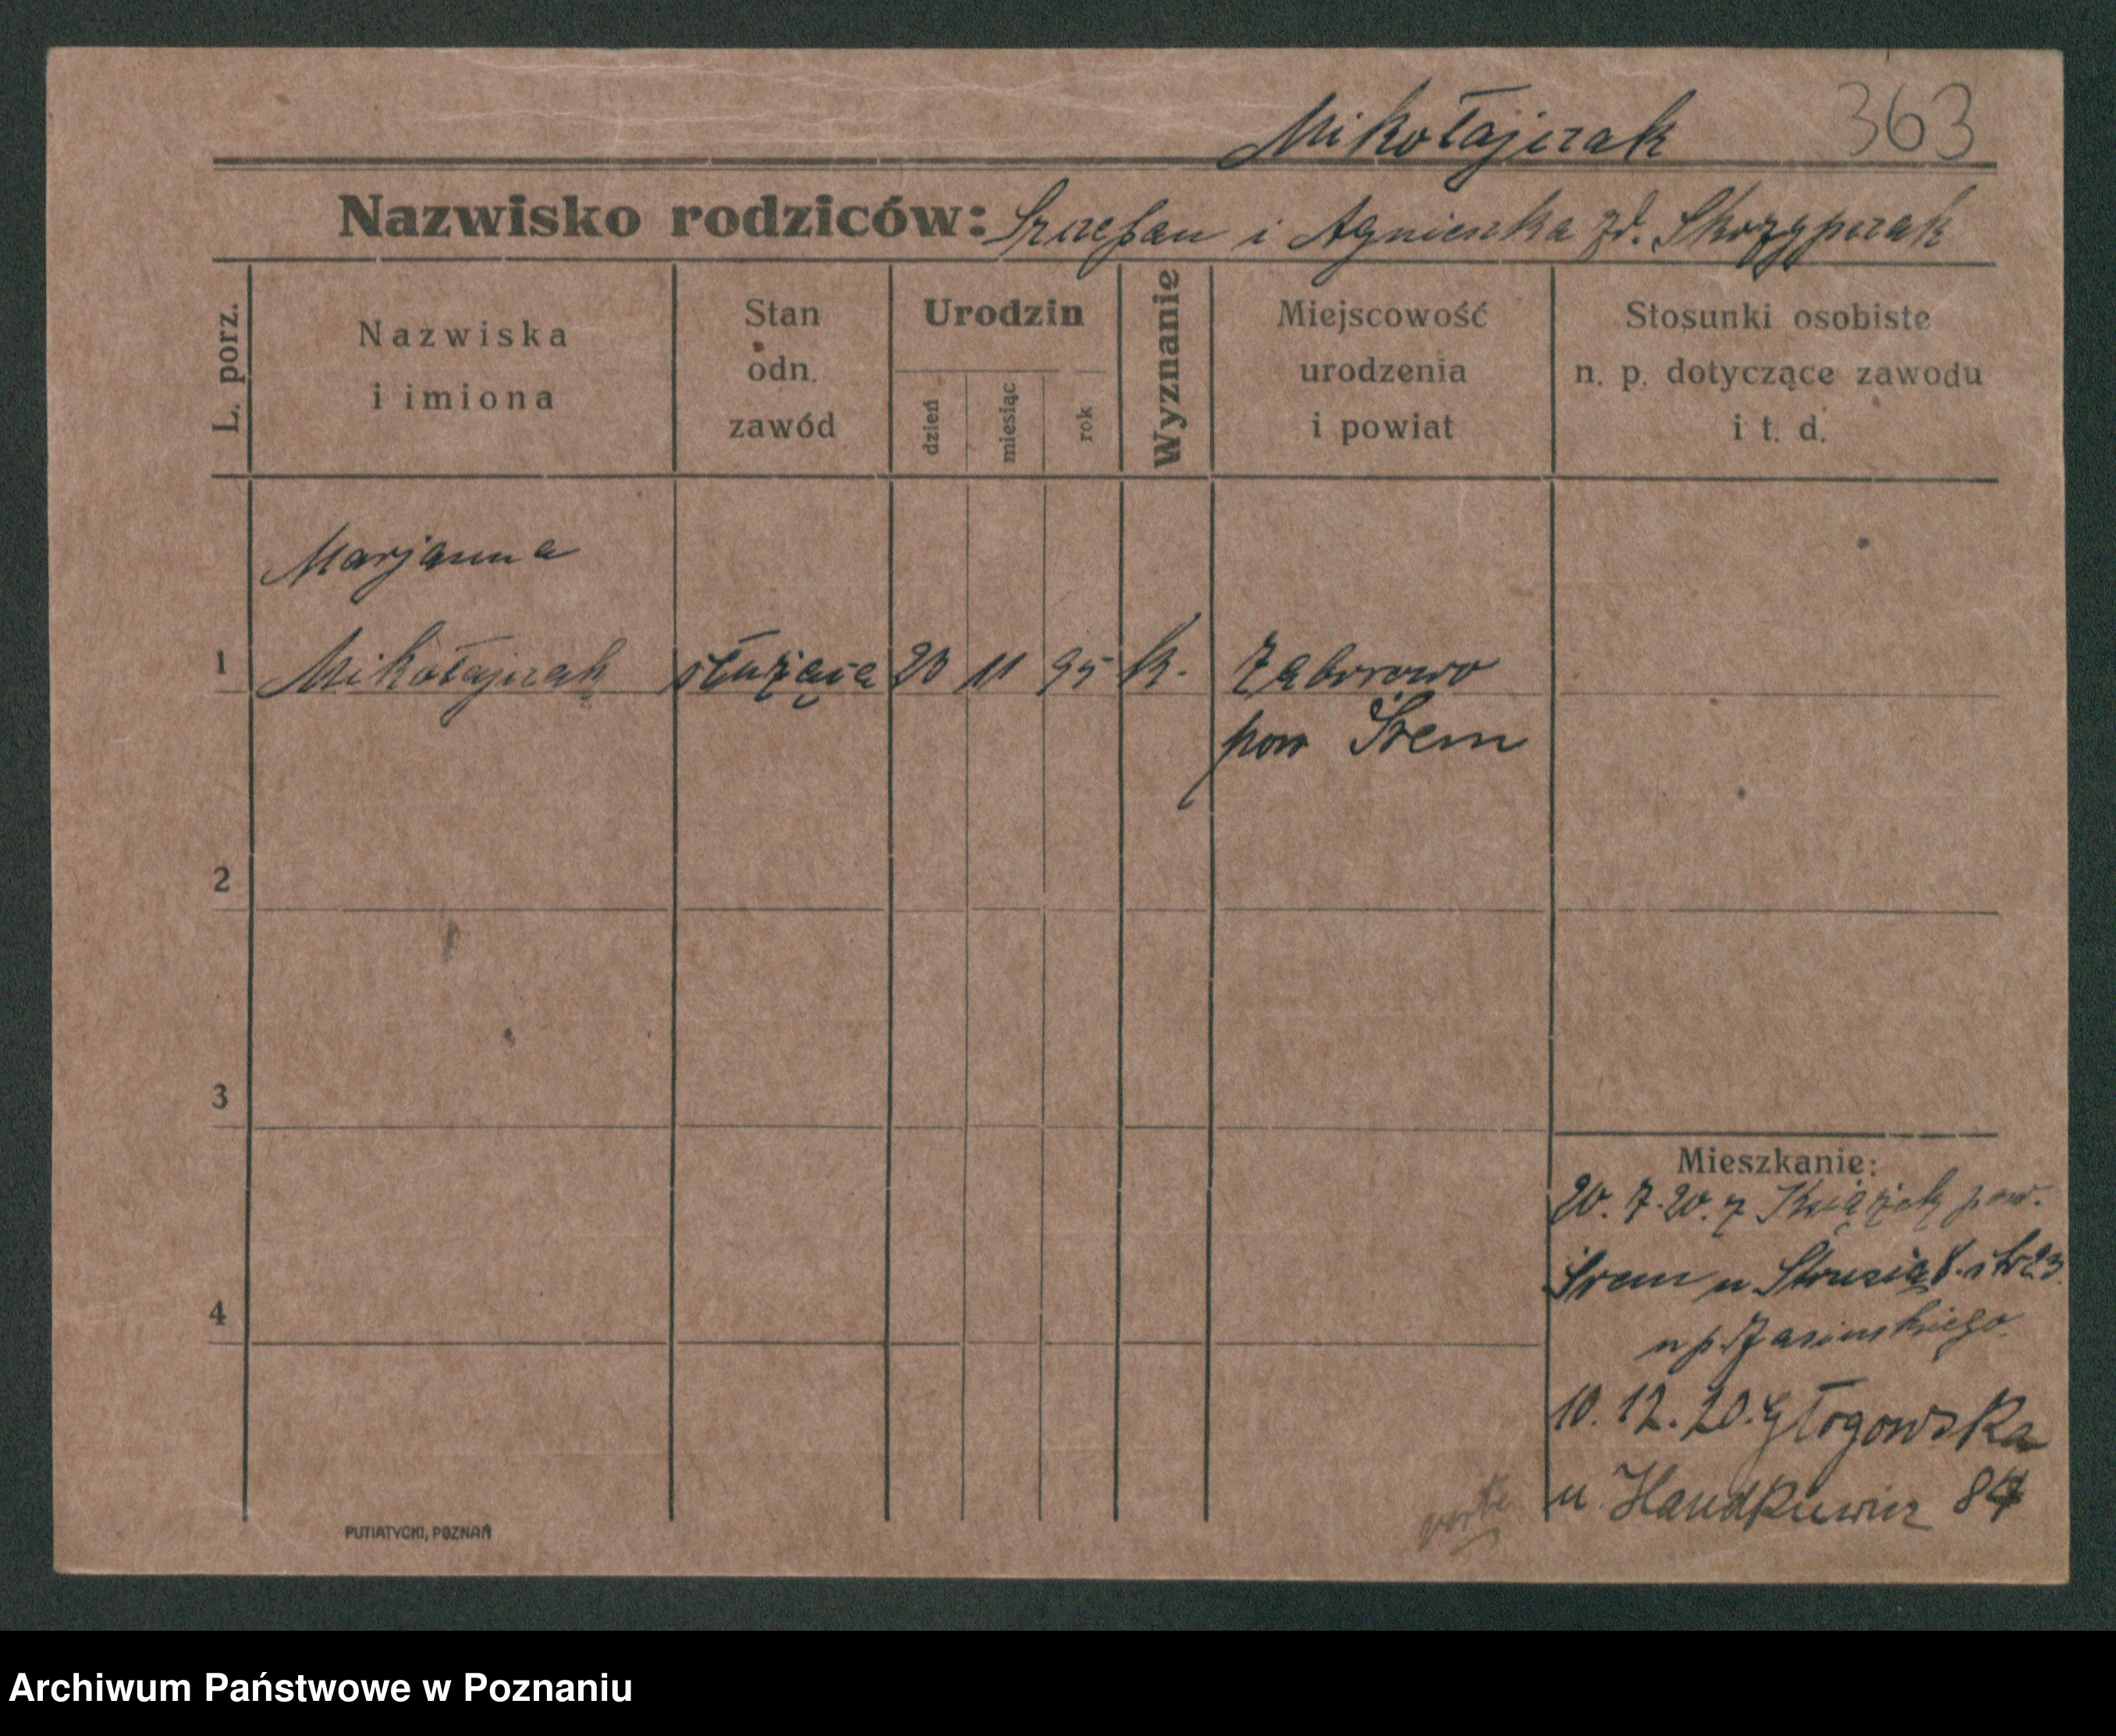 Mikołajczak 363
Nazwisko rodziców: Szczepan i Agnieszka zd. Skrzypczak
L. porz.
Nazwiska
i imiona
Stan
odn.
zawód
Urodzin
dzień
miesiąc
rok
Wyznanie
Miejscowość
urodzenia
i powiat
Stosunki osobiste
n. p. dotyczące zawodu
i t. d.
Marjanna
1 Mikołajczak służąca 23 11 95 k. Zaborowo
pow Śrem
2
3
Mieszkanie:
20. 7. 20. z Książek pow.
4
Śrem u Strusia 8. str 23
u p. Jasinskiego.
10. 12. 20. Głogowska
u. 84
PUTIATYCKI, POZNAŃ
Archiwum Państwowe w Poznaniu